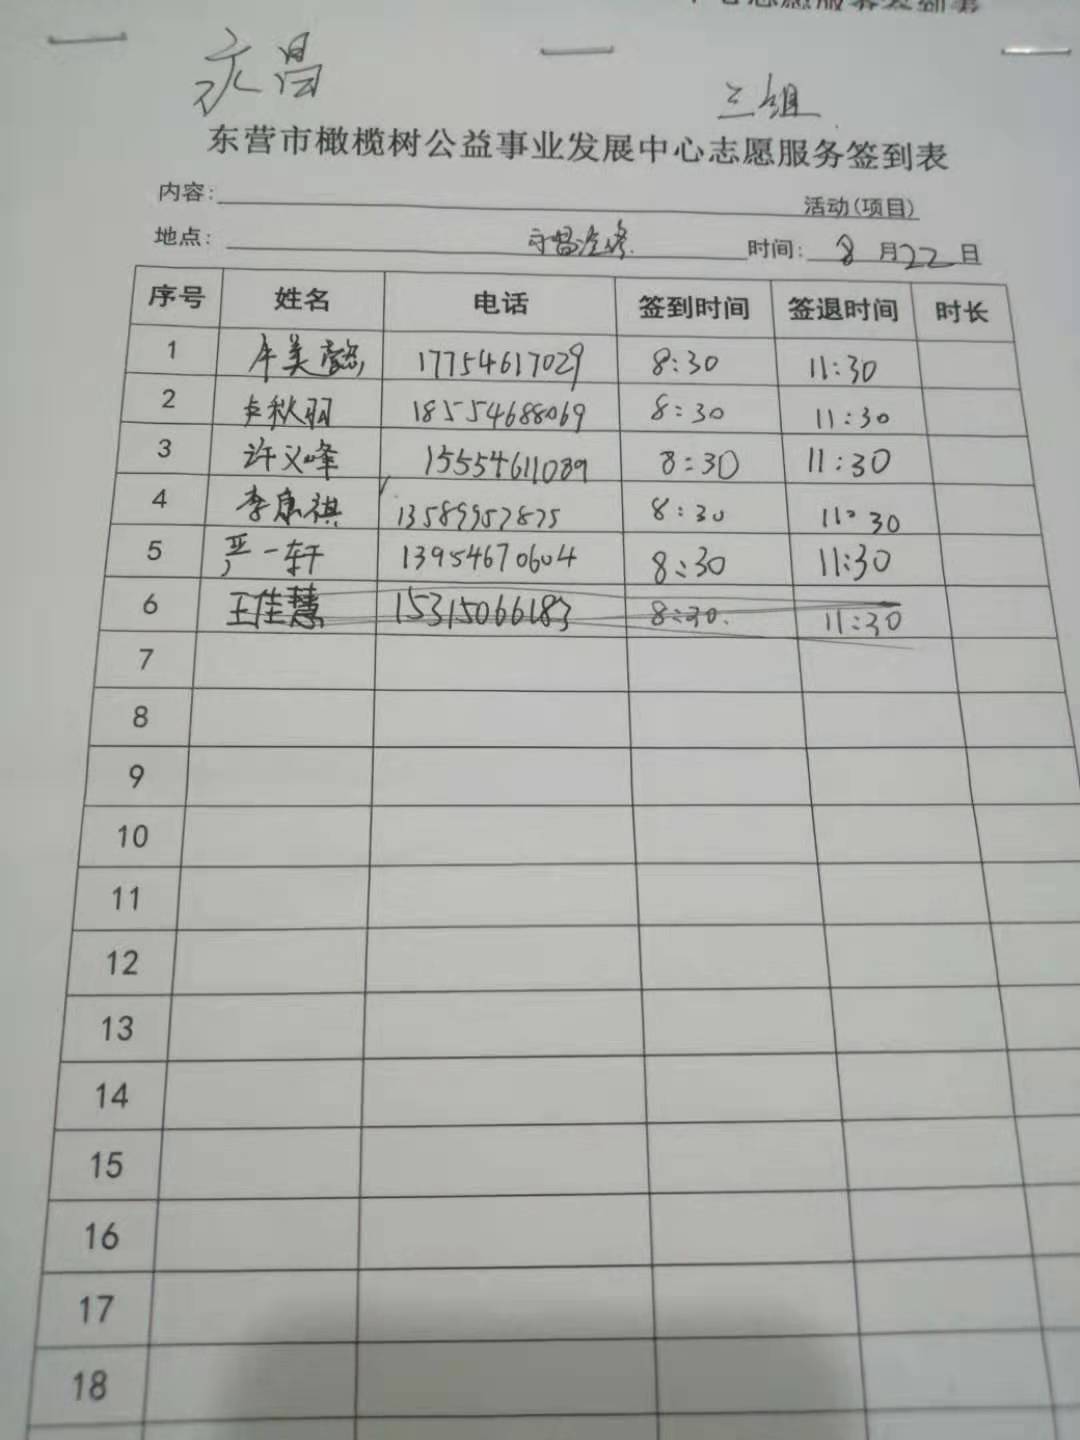 永昌
三组
东营市橄榄树公益事业发展中心志愿服务签到表
内容: 活动(项目)
地点: 永昌 时间: 8月22日
序号 姓名 电话 签到时间 签退时间 时长
1 牟美懿 17754617029 8:30 11:30
2 卢秋羽 18554688069 8:30 11:30
3 许义峰 15554611089 8:30 11:30
4 李康祺 13589957875 8:30 11:30
5 严一轩 13954670604 8:30 11:30
6 王佳慧 15315066183 8:30 11:30
7
8
9
10
11
12
13
14
15
16
17
18